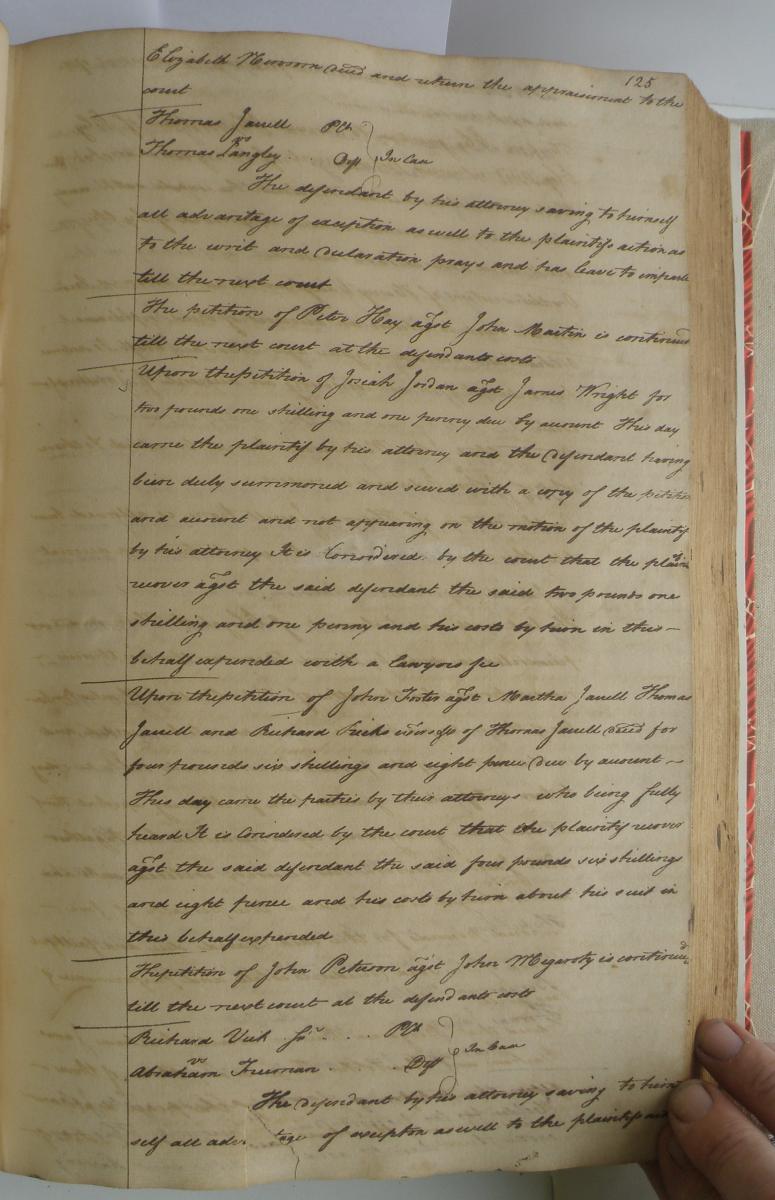 125
Elizabeth Newsom decd and return the appraisment to the
court
Thomas Jarrell Plt
vs
Thomas Langley . . Deft In Case
The defendant by his attorney saving to himself
all advantage of exception as well to the plaintifs action as
to the writ and declaration prays and has leave to imparle
till the next court
The petition of Peter Hay agst John Martin is continued
till the next court at the defendants costs
Upon the petition of Josiah Jordan agst James Wright for
two pound one shilling and one penny due by account This day
came the plaintif by his attorney and the Defendant having
been duly summoned and served with a copy of the petition
and account and not appearing on the motion of the plaintif
by his attorney It is Considered by the court that the plaintif
recover agst the said defendant the said two pounds one
shilling and one penny and his costs by him in this
behalf expended with a lawyers fee
Upon the petition of John Foster agst Martha Jarrell Thomas
Jarrell and Richard Ricks of Thomas Jarrell decd for
four pounds six shillings and eight pence due by account
This day came the parties by their attorneys who being fully
heard It is Considered by the court that the plaintif recover
agst the said defendant the said four pounds six shillings
and eight pence and his costs by him about his suit in
this behalf expended
The petition of John Peterson agst John Megarity is continued
till the next court at the defendants costs
Richard Vick Jr . . . . Plt
vs
Abraham Freeman . . . . . Deft In Case
The defendant by his attorney saving to him
self all of exception as well to the plaintifs